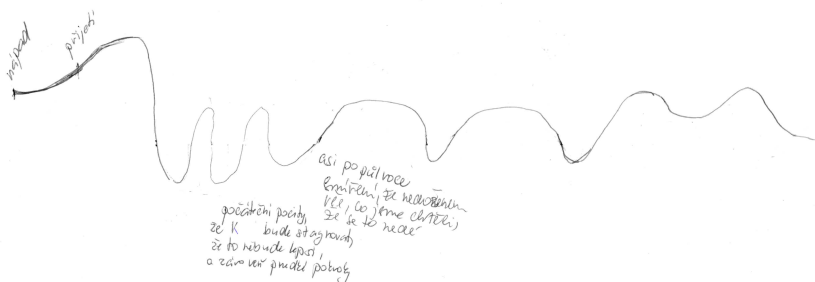 nápad
přijetí
asi po půl roce
smíření, že nedosáhnem
vše, co jsme chtěli,
že se to nedě
počáteční pocity,
že K bude stagnovat,
že to nebude lepší,
a zároveň prudké pokroky